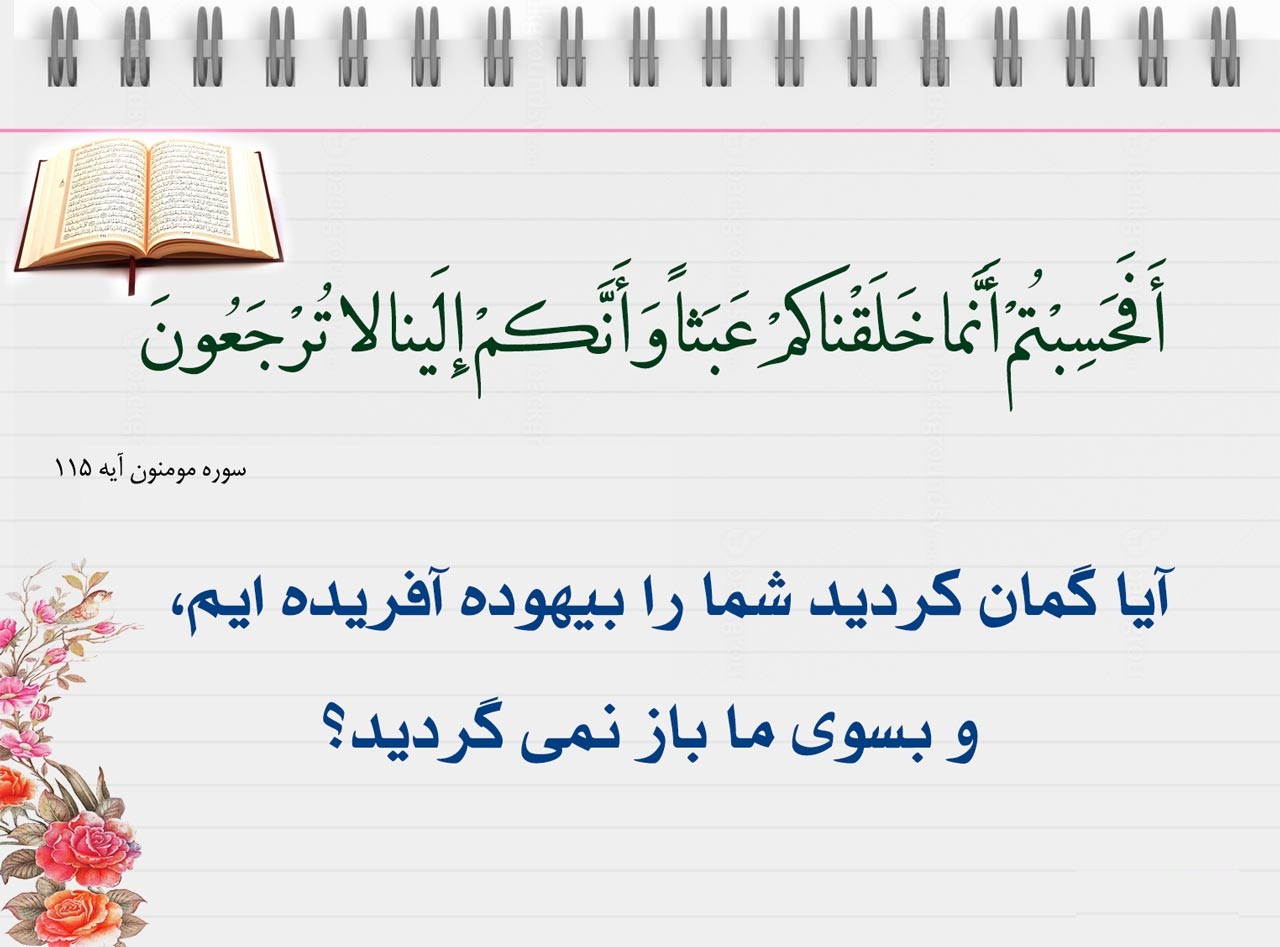 أَفَحَسِبْتُمْ أَنَّما خَلَقْناكُمْ عَبَثاً وَ أَنَّكُمْ إِلَينا لا تُرْجَعُونَ
سوره مومنون آیه ۱۱۵
آیا گمان کردید شما را بیهوده آفریده ایم،
و بسوی ما باز نمی گردید؟